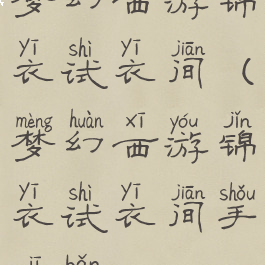 梦幻西游锦
yī shì yī jiān
衣试衣间（
mèng huàn xī yóu jǐn
梦幻西游锦
yī shì yī jiān shǒu
衣试衣间手
jī bǎn